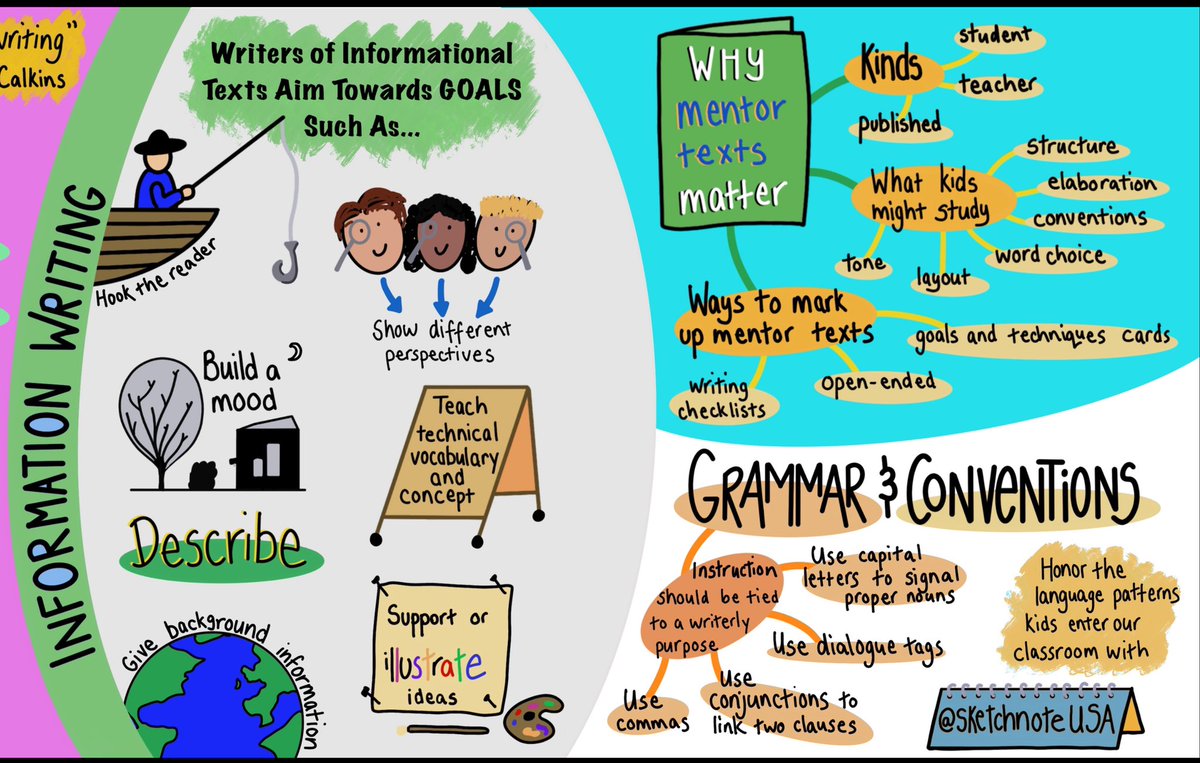 writing"
Calkins
INFORMATION WRITING
Writers of Informational
Texts Aim Towards GOALS
Such As...
Hook the reader
Show different
perspectives
Build a
mood
Teach
technical
vocabulary
and
concept
Describe
Give background information
Support or
illustrate
ideas
WHY
mentor
texts
matter
Kinds
student
teacher
published
What kids
might study
structure
elaboration
conventions
word choice
layout
tone
Ways to mark
up mentor texts
goals and techniques cards
open-ended
writing
checklists
GRAMMAR & CONVENTIONS
Instruction
should be tied
to a writerly
purpose
Use capital
letters to signal
proper nouns
Use dialogue tags
Use
conjunctions to
link two clauses
Use
commas
Honor the
language patterns
kids enter our
classroom with
@sketchnote USA